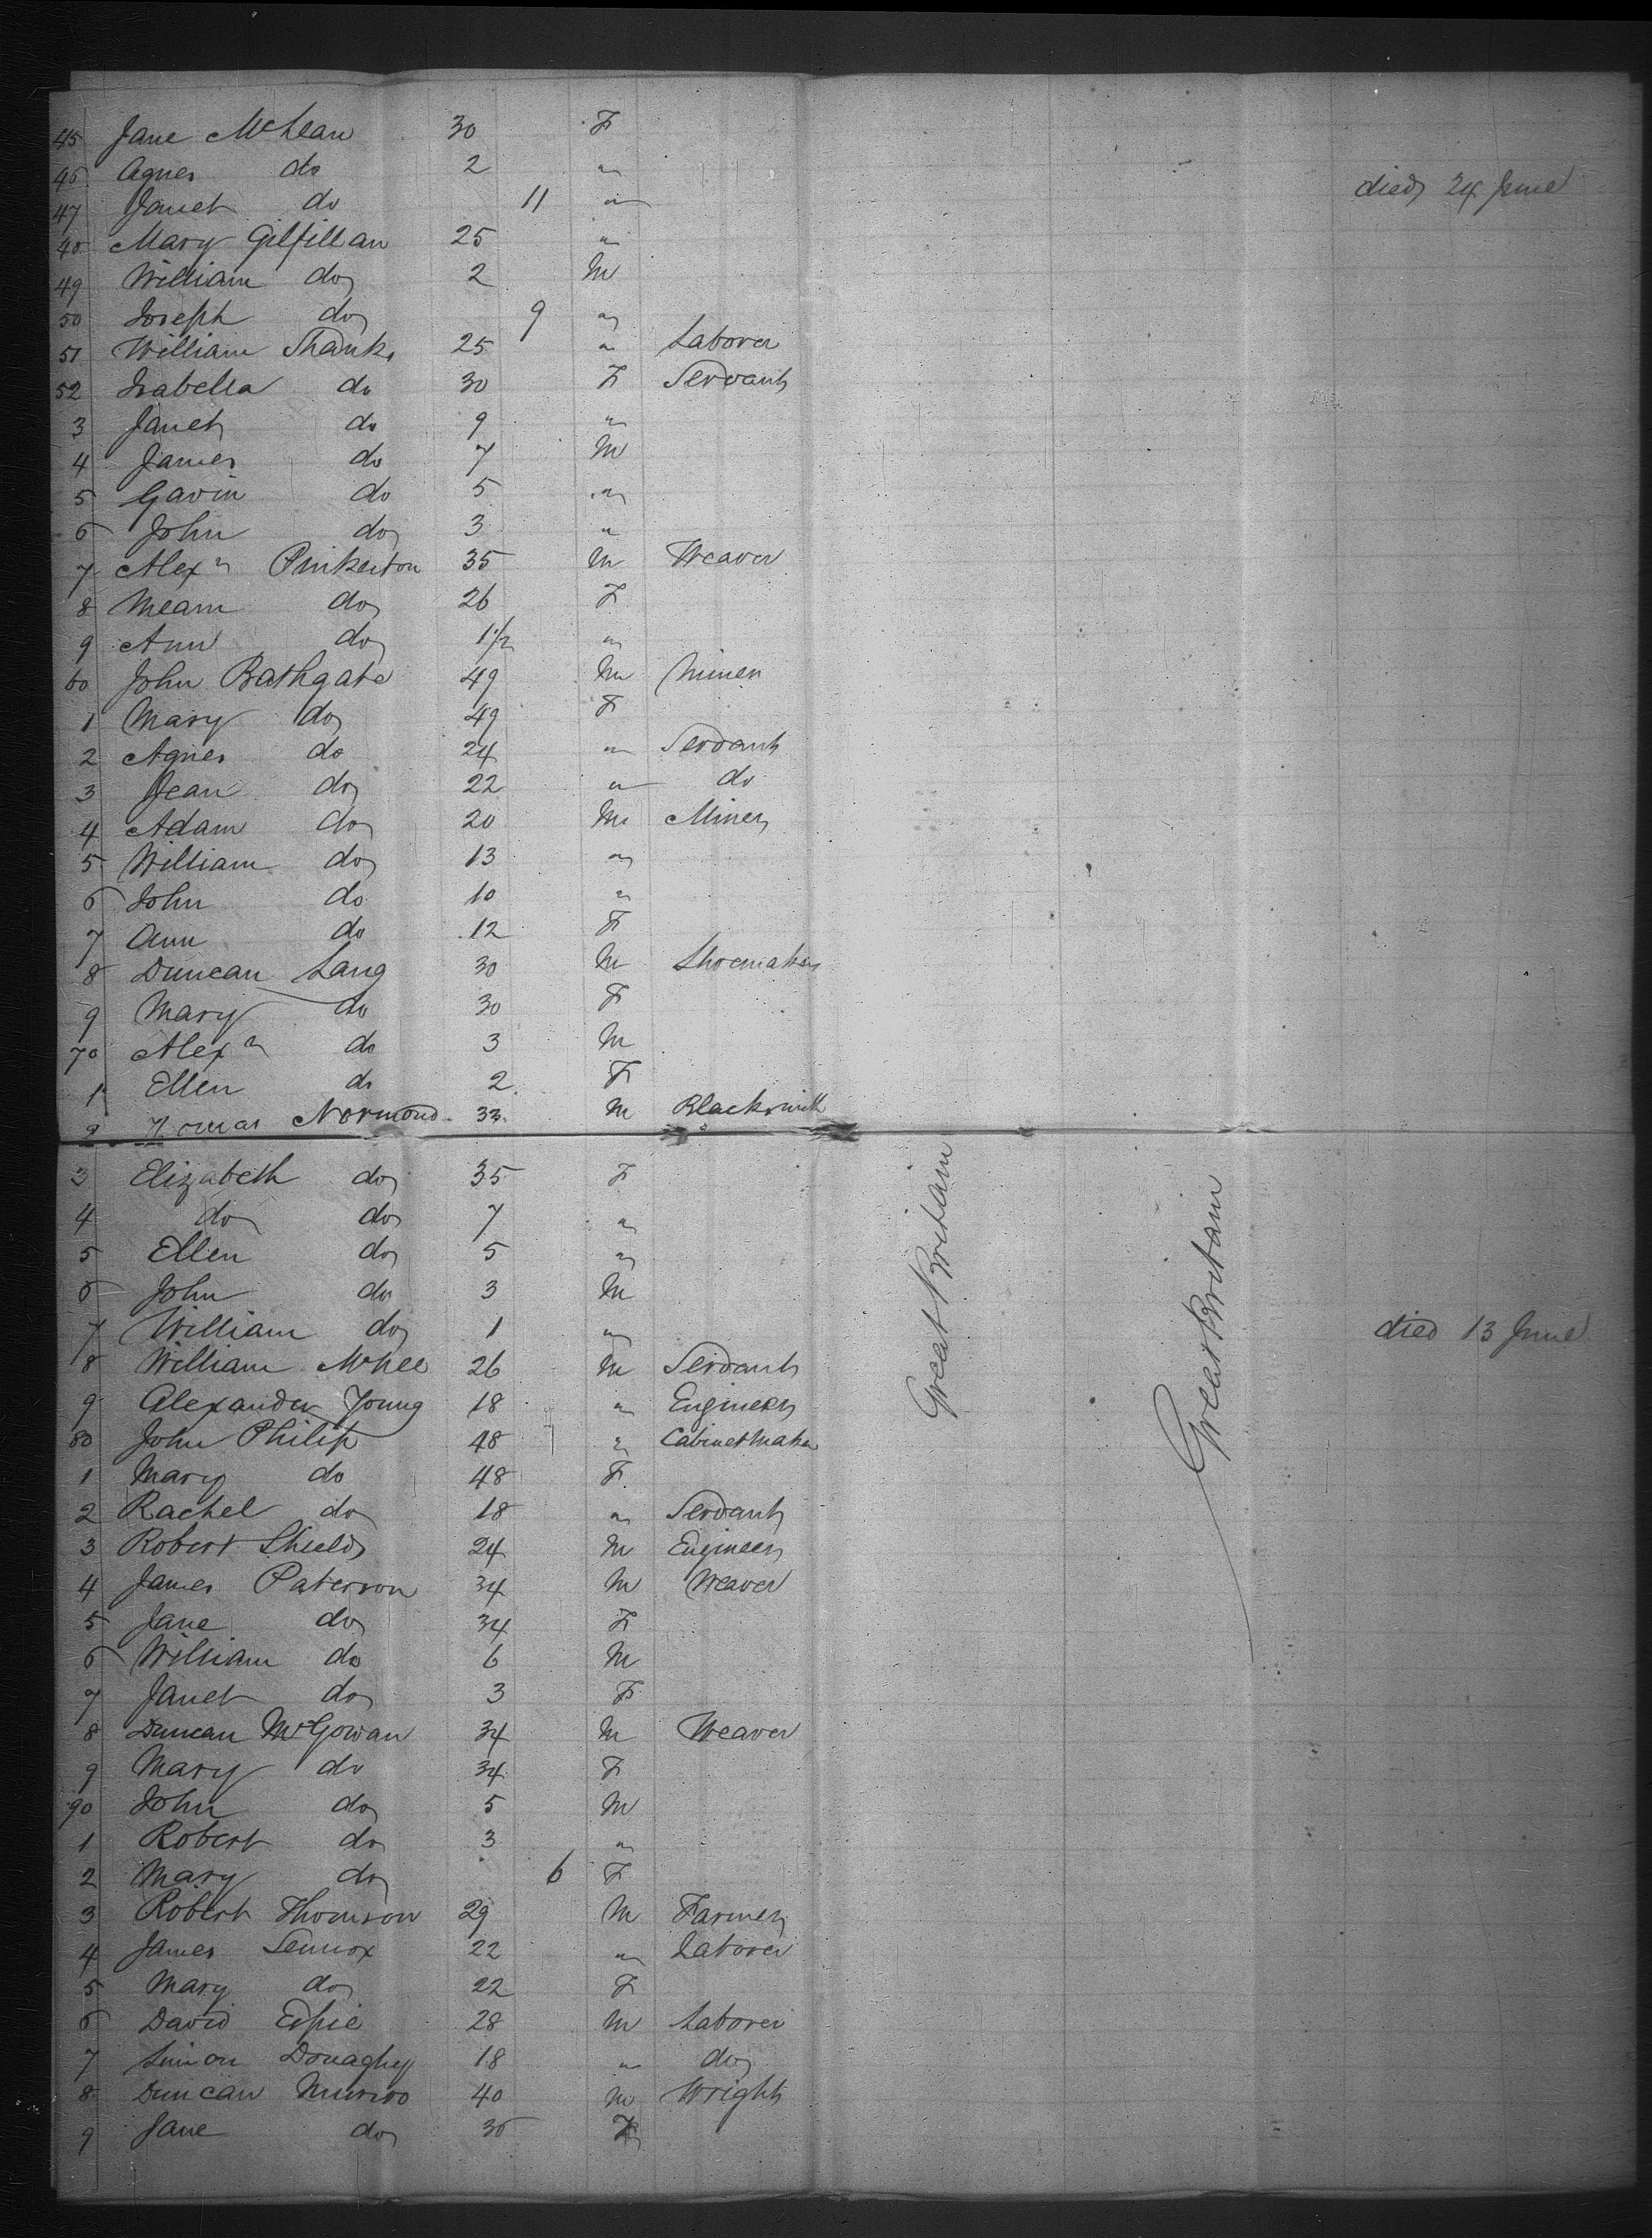 45 Jane McLean 30 F
46 Agnes do 2 "
47 Janet do 11 " died 24 June
48 Mary Gilfillan 25 "
49 William do 2 M
50 Joseph do 9 "
51 William Shanks 25 " Laborer
52 Isabella do 30 F Servant
3 Janet do 9 "
4 James do 7 M
5 Gavin do 5 "
6 John do 3 "
7 Alexr Pinkerton 35 M Weaver
8 do 26 F
9 Ann do 1 1/2 "
60 John Bathgate 49 M Miner
1 Mary do 49 F
2 Agnes do 24 " Servant
3 Jean do 22 " do
4 Adam do 20 M Miner
5 William do 13 "
6 John do 10 "
7 Ann do 12 F
8 Duncan Lang 30 M Shoemaker
9 Mary do 30 F
70 Alexr do 3 M
1 Ellen do 2 F
2 Normond 33 M Blacksmith
3 Elizabeth do 35 F
4 do do 7 "
5 Ellen do 5 "
6 John do 3 M
7 William do 1 " died 13 June
8 William McKee 26 M Servant
9 Alexander Young 18 " Engineer
80 John Philip 48 " Cabinetmaker
1 Mary do 48 F
2 Rachel do 18 " Servant
3 Robert Shields 24 M Engineer
4 James Paterson 34 M Weaver
5 Jane do 34 F
6 William do 6 M
7 Janet do 3 F
8 Duncan McGowan 34 M Weaver
9 Mary do 34 F
90 John do 5 M
1 Robert do 3 "
2 Mary do 6 F
3 Robert Thomson 29 M Farmer
4 James Lennox 22 " Laborer
5 Mary do 22 F
6 David Espie 28 M Laborer
7 Simon Donaghey 18 " do
8 Duncan Munroo 40 M Wright
9 Jane do F
Great Britain
Great Britain